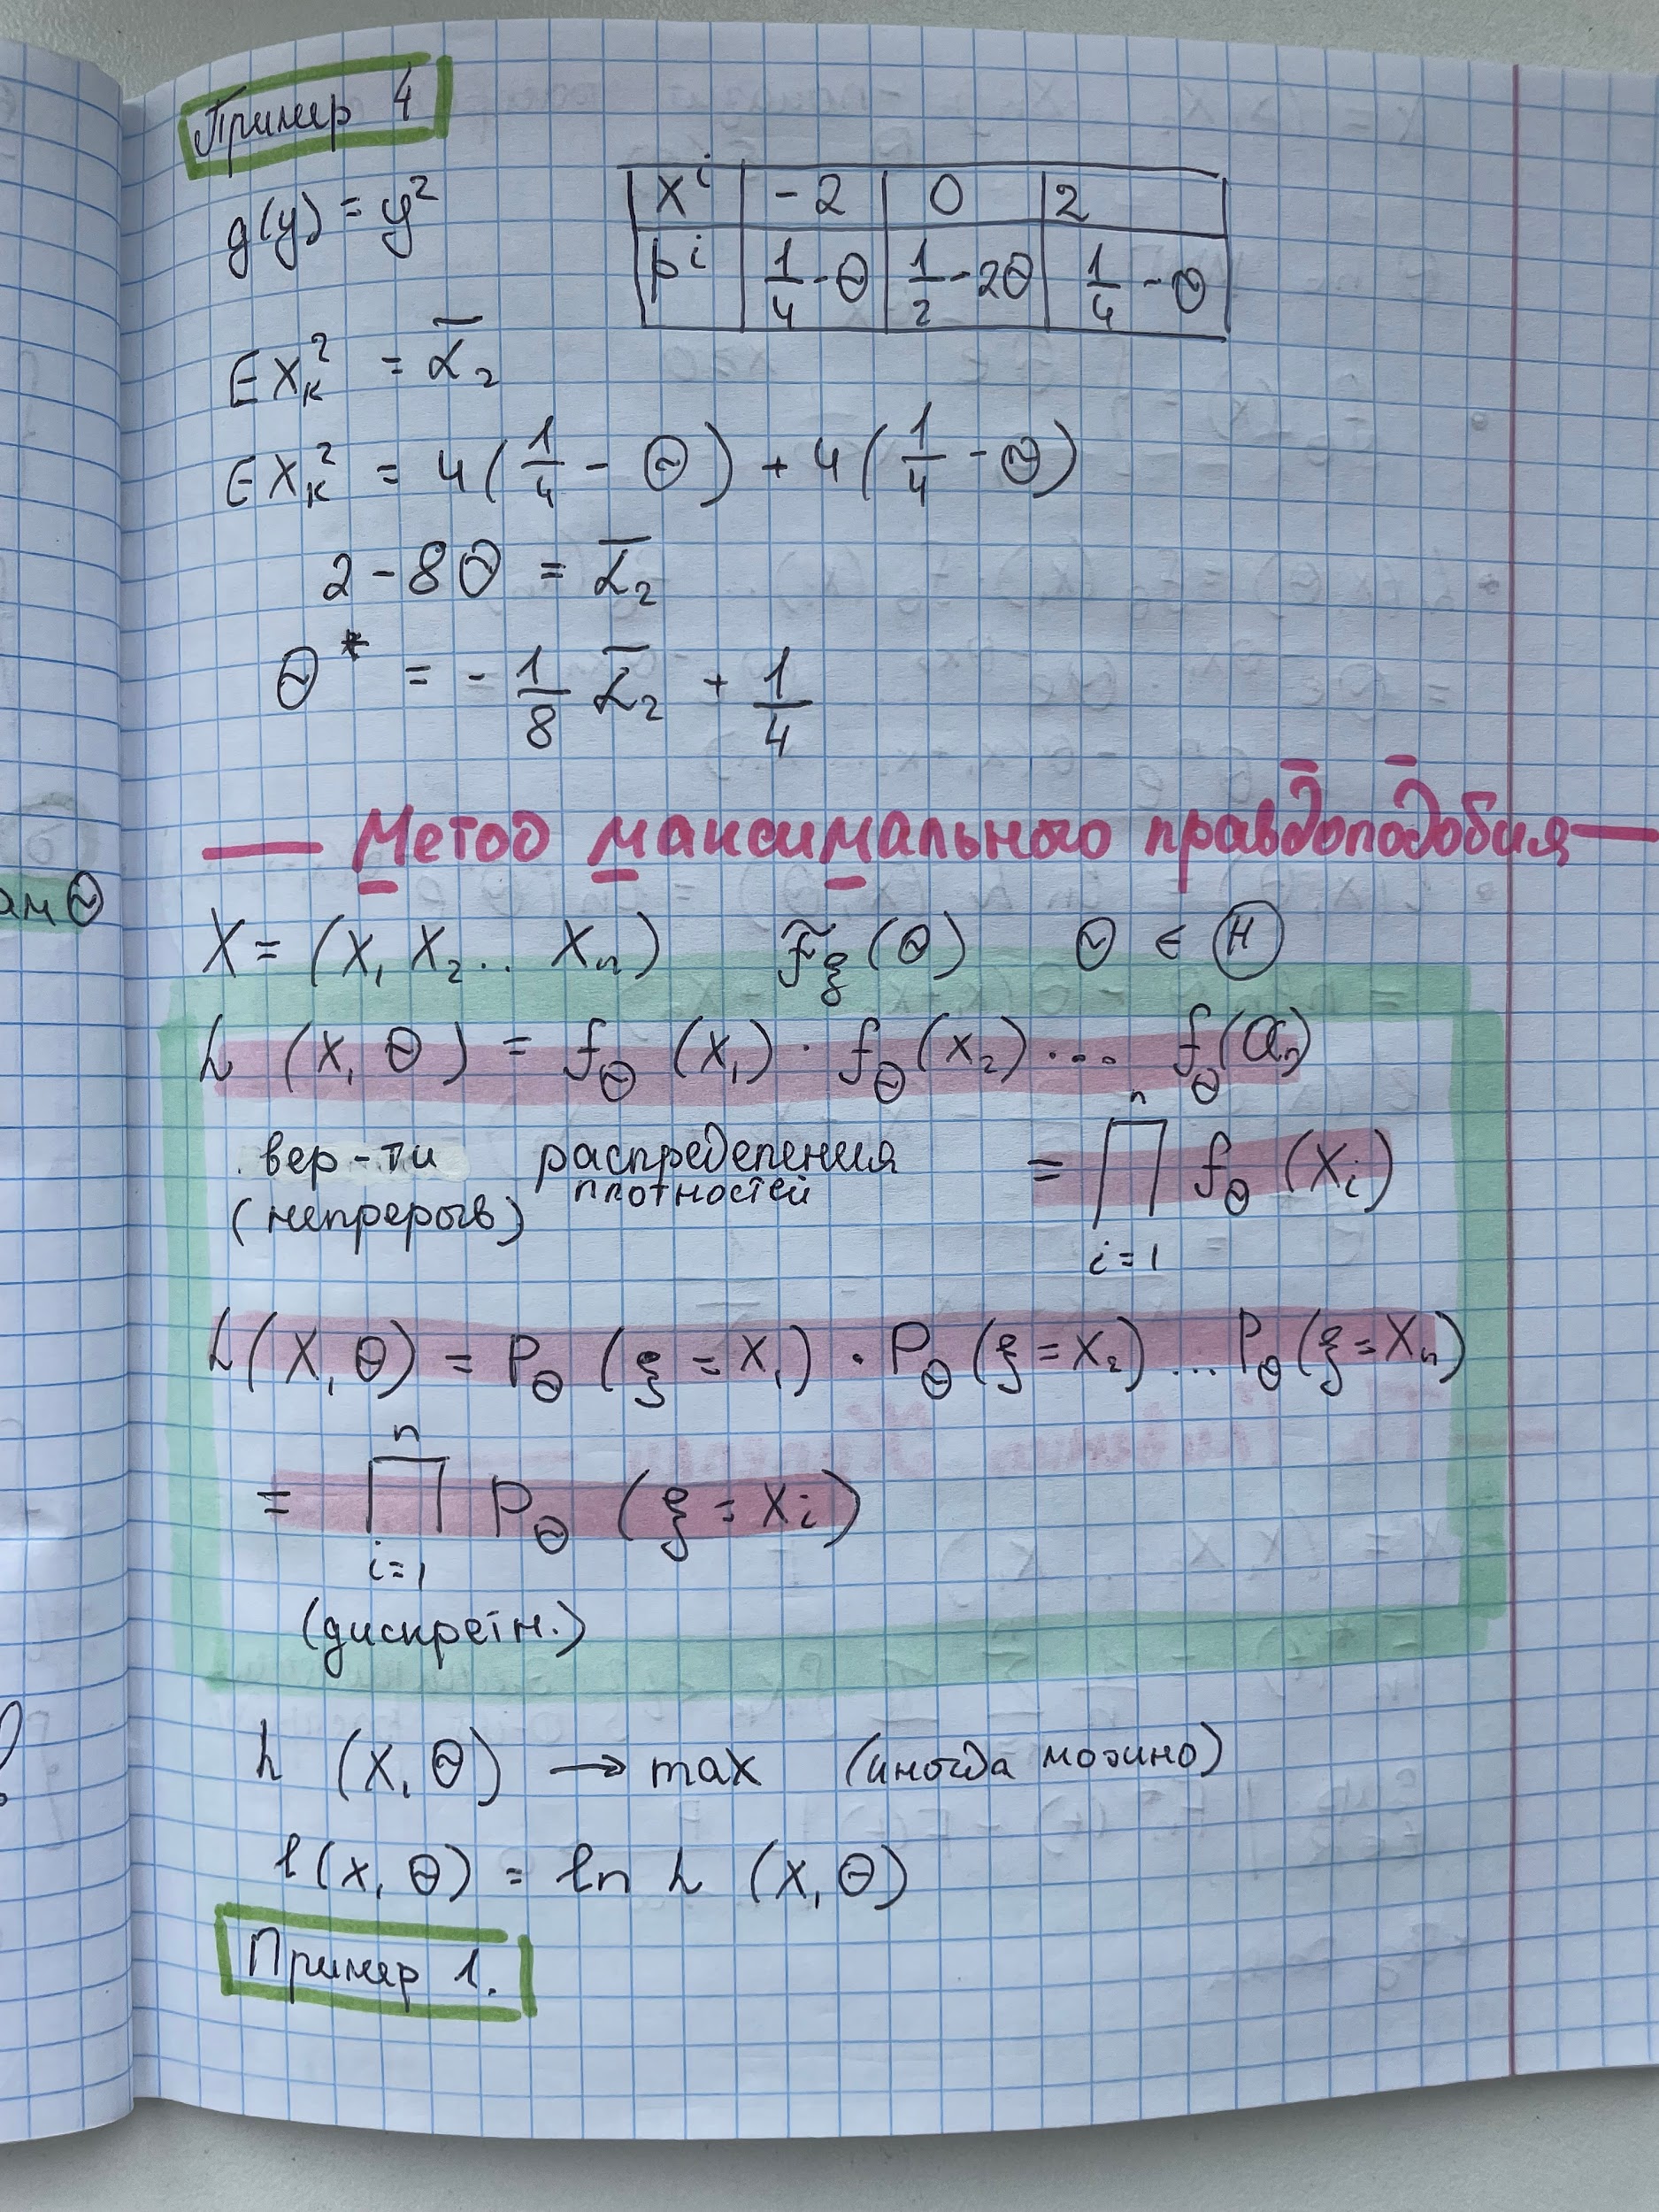 Пример 4
g(y) = y²
x^i | -2 | 0 | 2
p^i | 1/4 - Θ | 1/2 - 2Θ | 1/4 - Θ
EX_k² = ᾱ₂
EX_k² = 4(1/4 - Θ) + 4(1/4 - Θ)
2 - 8Θ = ᾱ₂
Θ* = - 1/8 ᾱ₂ + 1/4
— Метод максимального правдоподобия —
X = (X₁ X₂ .. Xₙ) F̃_ξ(Θ) Θ ∈ Ⓗ
L (X, Θ) = f_Θ (X₁) · f_Θ (X₂) ... f_Θ (Xₙ)
вер-ти распределения
плотностей
(непрерыв)
= ∏_{i=1}^{n} f_Θ (X_i)
L(X, Θ) = P_Θ (ξ = X₁) · P_Θ (ξ = X₂) ... P_Θ (ξ = Xₙ)
= ∏_{i=1}^{n} P_Θ (ξ = X_i)
(дискретн.)
L (X, Θ) → max (иногда можно)
l(X, Θ) = ln L (X, Θ)
Пример 1.